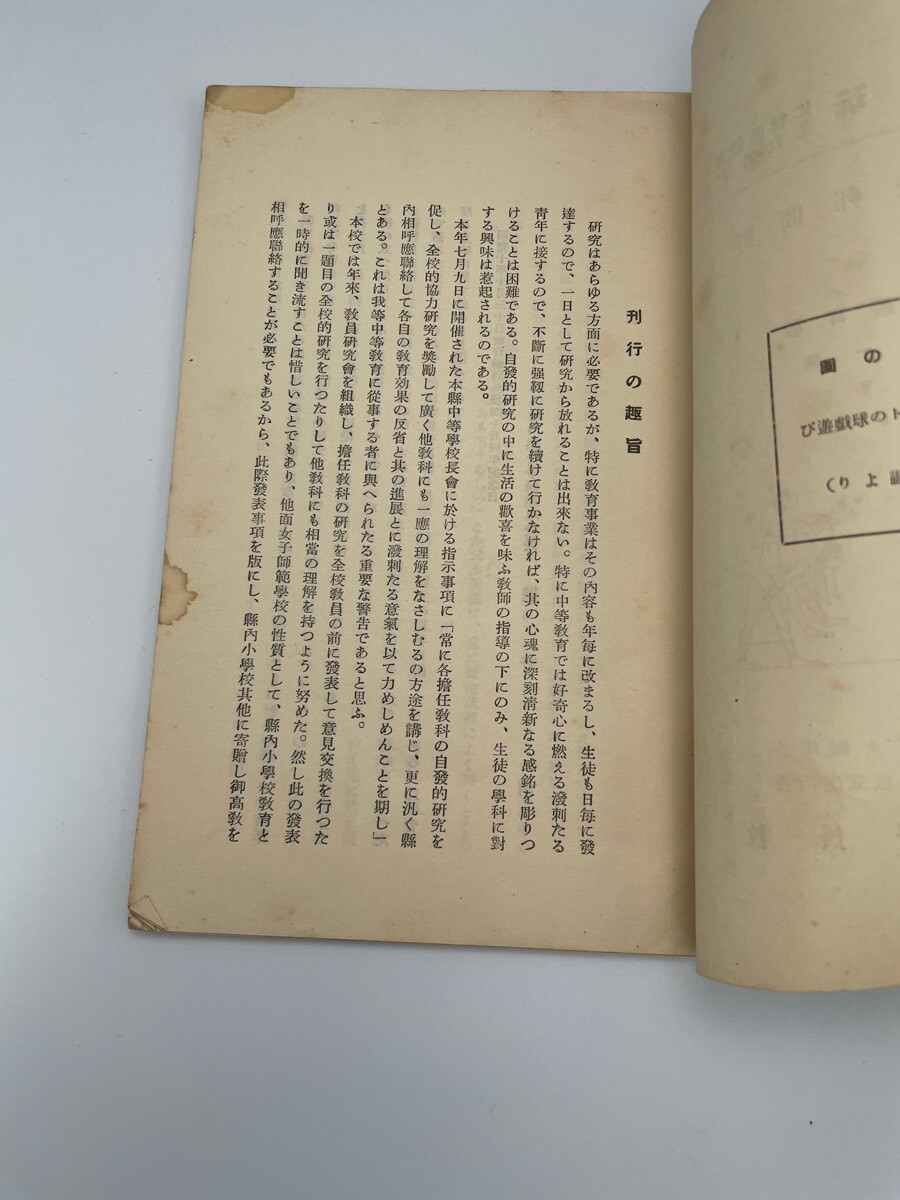 刊行の趣旨
研究はあらゆる方面に必要であるが、特に敎育事業はその內容も年每に改まるし、生徒も日每に發
達するので、一日として硏究から放れることは出來ない。特に中等敎育では好奇心に燃える潑刺たる
靑年に接するので、不斷に强靱に硏究を續けて行かなければ、其の心魂に深刻淸新なる感銘を彫りつ
けることは困難である。自發的硏究の中に生活の歡喜を味ふ敎師の指導の下にのみ、生徒の學科に對
する興味は惹起されるのである。
本年七月九日に開催された本縣中等學校長會に於ける指示事項に「常に各擔任敎科の自發的硏究を
促し、全校的協力硏究を奬勵して廣く他敎科にも一應の理解をなさしむるの方途を講じ、更に汎く縣
內相呼應聯絡して各自の敎育効果の反省と其の進展とに潑刺たる意氣を以て力めしめんことを期し」
とある。これは我等中等敎育に從事する者に與へられたる重要な警告であると思ふ。
本校では年來、敎員硏究會を組織し、擔任敎科の硏究を全校敎員の前に發表して意見交換を行つた
り或は一題目の全校的硏究を行つたりして他敎科にも相當の理解を持つように努めた。然し此の發表
を一時的に聞き流すことは惜しいことでもあり、他面女子師範學校の性質として、縣內小學校敎育と
相呼應聯絡することが必要でもあるから、此際發表事項を版にし、縣內小學校其他に寄贈し御高敎を
の圖
トの球戯遊び
より)